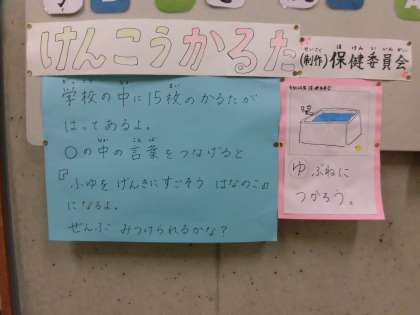 けんこうかるた
(制作)保健委員会
学校の中に15枚のかるたが
はってあるよ。
○の中の言葉をつなげると
『ふゆを げんきにすごそう はなのこ』
になるよ。
ぜんぶ みつけられるかな?
ゆぶねに
つかろう。